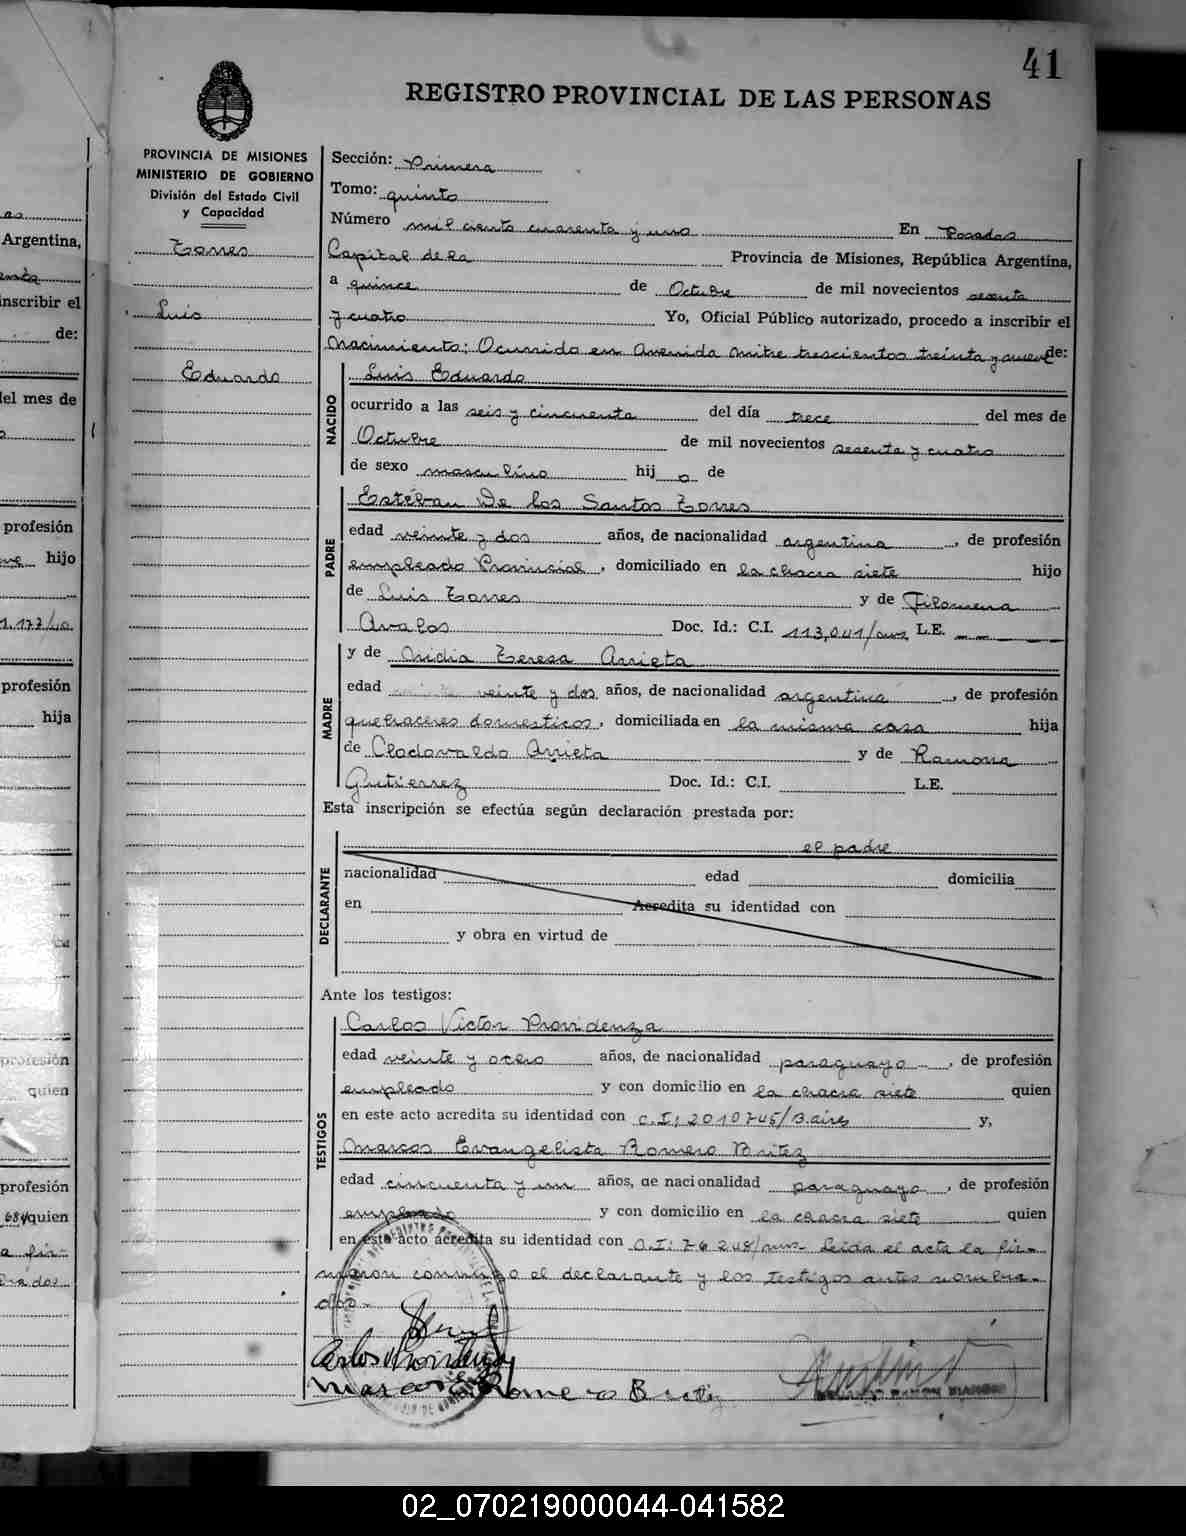 41
REGISTRO PROVINCIAL DE LAS PERSONAS
PROVINCIA DE MISIONES
MINISTERIO DE GOBIERNO
División del Estado Civil
y Capacidad
Torres
Luis
Eduardo
Sección: Primera
Tomo: quinto
Número mil ciento cuarenta y uno En Posadas
Capital de la Provincia de Misiones, República Argentina,
a quince de Octubre de mil novecientos sesenta
y cuatro Yo, Oficial Público autorizado, procedo a inscribir el
Nacimiento; Ocurrido en Avenida mitre trescientos treinta y nueve de:
NACIDO
Luis Eduardo
ocurrido a las seis y cincuenta del día trece del mes de
Octubre de mil novecientos sesenta y cuatro
de sexo masculino hij o de
PADRE
Estéban De los Santos Torres
edad veinte y dos años, de nacionalidad argentina, de profesión
empleado Provincial, domiciliado en la chacra siete hijo
de Luis Torres y de Filomena
Avalos Doc. Id.: C.I. 113,041/mnes L.E.
MADRE
y de Nidia Teresa Arrieta
edad veinte y dos años, de nacionalidad argentina, de profesión
quehaceres domesticos, domiciliada en la misma casa hija
de Clodovaldo Arrieta y de Ramona
Gutierrez Doc. Id.: C.I. L.E.
Esta inscripción se efectúa según declaración prestada por:
DECLARANTE
el padre
nacionalidad edad domicilia
en Acredita su identidad con
y obra en virtud de
Ante los testigos:
TESTIGOS
Carlos Victor Providenza
edad veinte y ocho años, de nacionalidad paraguayo, de profesión
empleado y con domicilio en la chacra siete quien
en este acto acredita su identidad con C.I; 2010745/B.aires y,
Marcos Evangelista Romero Britez
edad cincuenta y un años, de nacionalidad paraguayo, de profesión
empleado y con domicilio en la chacra siete quien
en este acto acredita su identidad con C.I: 76 248/mnes Leida el acta la fir-
maron conmigo el declarante y los testigos antes nombra-
dos.-
Carlos Providenza
Marcos E Romero Britez
02_070219000044-041582